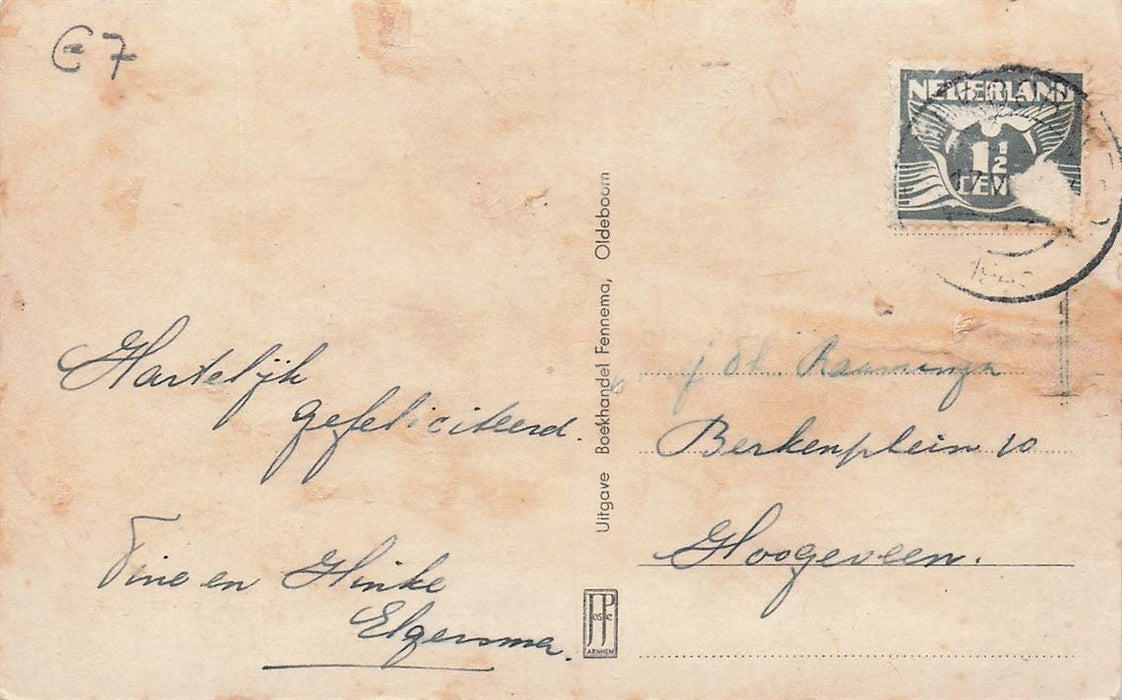 €7
NEDERLAND
1½
CENT
Hartelijk
gefeliciteerd.
Tine en Hinke
Elgersma.
Uitgave Boekhandel Fennema, Oldeboorn
JosPé
ARNHEM
Berkenplein 10
Hoogeveen.